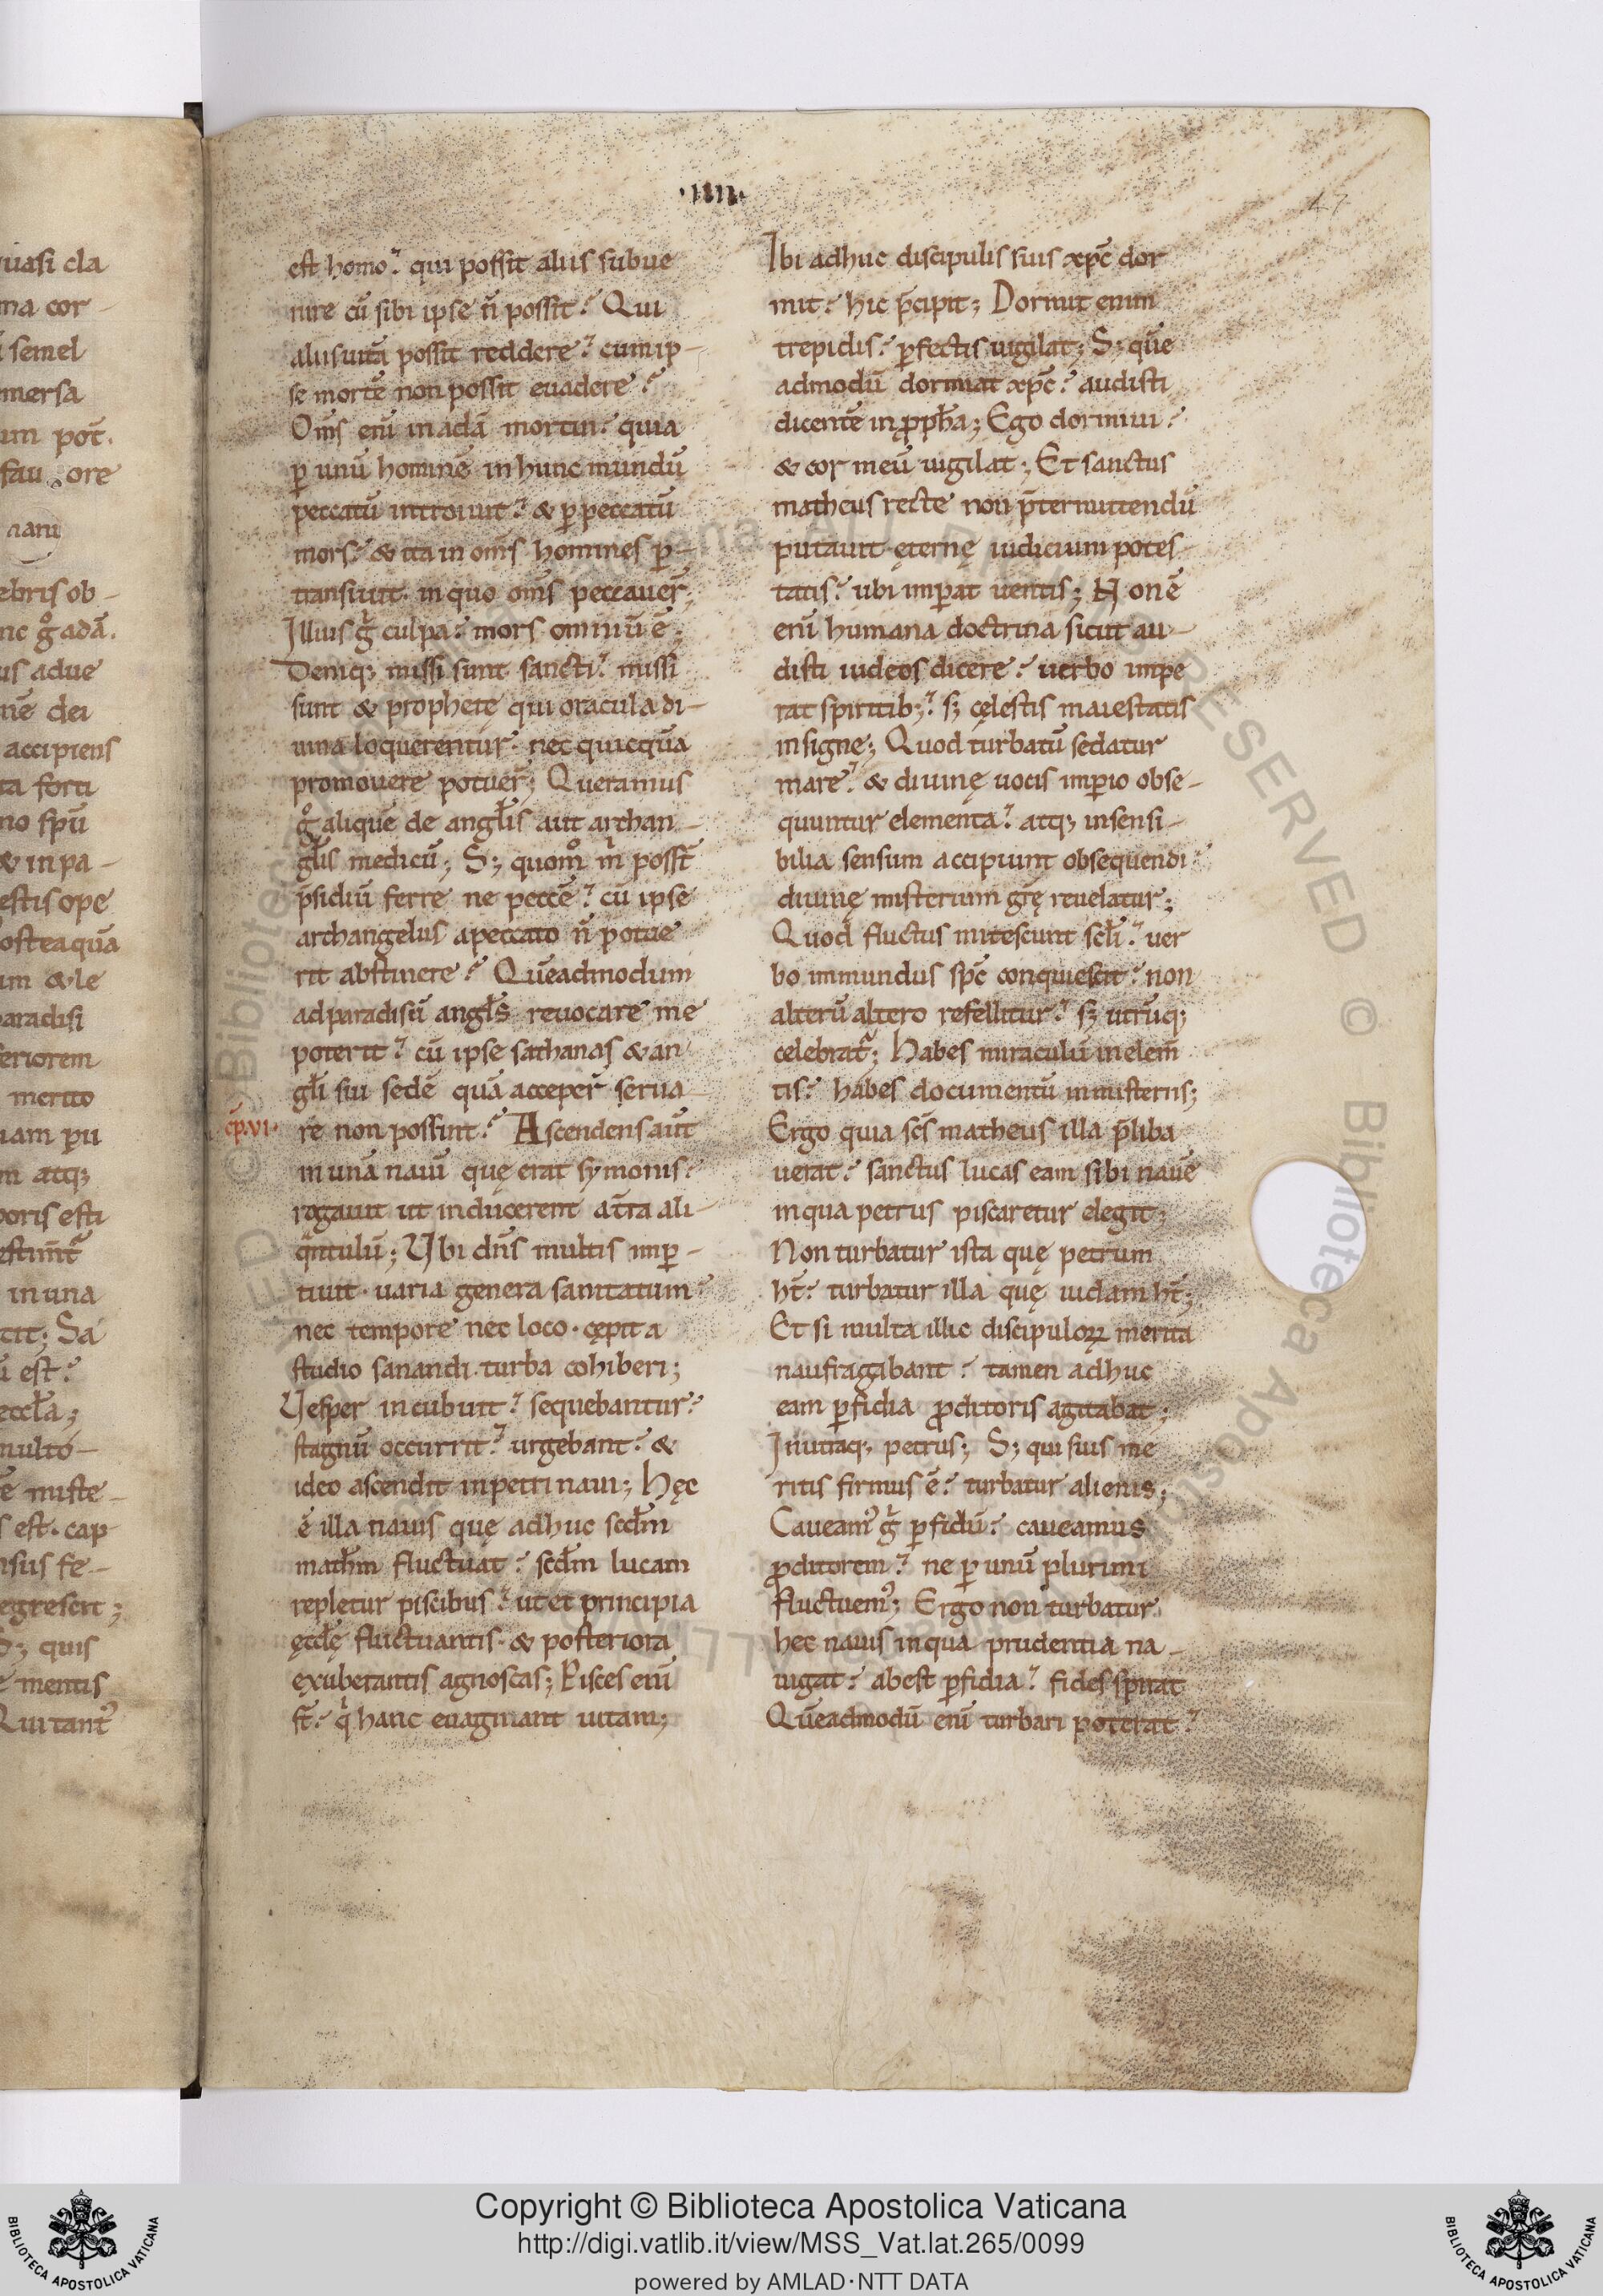 ·IIII·
47
uasi cla
ma cor-
semel
mersa
um pot̄.
fau ore
nam
ebris ob-
nc g̊ adā.
us adue
nē dei
accipiens
ta forti
no spū
& in pa-
estis ope
ostea quā
um & le
paradisi
feriorem
merito
iam pu
m atq;
poris esti
in una
tit; Sa
ū est?
eccła;
multo-
ē miste-
s est. cap
nsus fe-
egrescit;
S; quis
mentis
Qui tant᾿
est homo? qui possit aliis subue
nire cū sibi ipse n̄ possit? Qui
aliis uitā possit reddere? cum ip-
se mortē non possit euadere?
Om̄s enī in adā mortui? quia
ꝑ unū hominē in hunc mundū
peccatū introiuit? & ꝑ peccatū
mors? & ita in om̄s homines ꝑ-
transiuit. in quo om̄s peccauer̄;
Illius g̊ culpa? mors omniū ē;
Deniq; missi sunt sancti? missi
sunt & prophetę qui oracula di-
uina loquerentur? nec quicquā
promouere potuer̄; Queramus
g̊ aliquē de angłis aut archan-
głis medicū; S; quom̊ m̓ posst̄
p̄sidiū ferre ne peccē? cū ipse
archangelus a peccato n̄ potue
rit abstinere? Quēadmodum
ad paradisū angłs reuocare me
poterit? cū ipse sathanas & an
głi sui sedē quā acceper̄ serua-
cp̄.VI.
re non possint? Ascendens aūt
in unā nauī quę erat symonis?
rogauit ut inducerent a t̄ra ali-
qͣntulū; Vbi dn̄s multis imꝑ-
tiuit. uaria genera sanitatum?
nec tempore nec loco. cępit a
studio sanandi. turba cohiberi;
Vesper incubuit? sequebantur?
stagnū occurrit? urgebant? &
ideo ascendit in petri naui; Hęc
ē illa nauis quę adhuc scđm
mathm̄ fluctuat? scđm lucam
repletur piscibus? ut et principia
ęccłę fluctuantis. & posteriora
exuberantis agnoscas; Pisces enī
st̄? q̓ hanc euaginant uitam;
Ibi adhuc discipulis suis xp̄c dor
mit? hic p̄cipit; Dormit enim
trepidis? ꝑfectis uigilat; S; quē
admodū dormiat xp̄c? audisti
dicentē in ꝓpħa; Ego dormiui?
& cor meū uigilat; Et sanctus
matheus recte non p̄termittendū
putauit ęternę iudicium potes-
tatis? ubi imꝑat uentis; Non ē
enī humana doctrina sicut au-
disti iudeos dicere? uerbo impe
rat spiritib;? s; cęlestis maiestatis
insigne; Quod turbatū sedatur
mare? & diuinę uocis imꝑio obse-
quuntur elementa? atq; insensi-
bilia sensum accipiunt obsequendi?
diuinę misterium gr̄ę reuelatur;
Quod fluctus mitescunt scłi? uer
bo immundus sp̄c conquiescit? non
alterū altero refellitur? s; utrūq;
celebrat᾿; Habes miraculū in elem̄
tis? habes documentū in misteriis;
Ergo quia sc̄s matheus illa p̄liba
uerat? sanctus lucas eam sibi nauē
in qua petrus piscaretur elegit;
Non turbatur ista quę petrum
ht̄? turbatur illa quę iudam ht̄;
Et si multa illic discipuloꝝ merita
naufragabant? tamen adhuc
eam ꝑfidia ꝓditoris agitabat;
In utraq; petrus; S; qui suis me
ritis firmus ē? turbatur alienis;
Caueam᾿ g̊ ꝑfidū? caueamus
ꝓditorem? ne ꝑ unū plurimi
fluctuem᾿; Ergo non turbatur
hec nauis in qua prudentia na-
uigat? abest ꝑfidia? fides spirat
Quēadmodū enī turbari poterat?
Copyright © Biblioteca Apostolica Vaticana
http://digi.vatlib.it/view/MSS_Vat.lat.265/0099
powered by AMLAD·NTT DATA
BIBLIOTECA APOSTOLICA VATICANA
BIBLIOTECA APOSTOLICA VATICANA